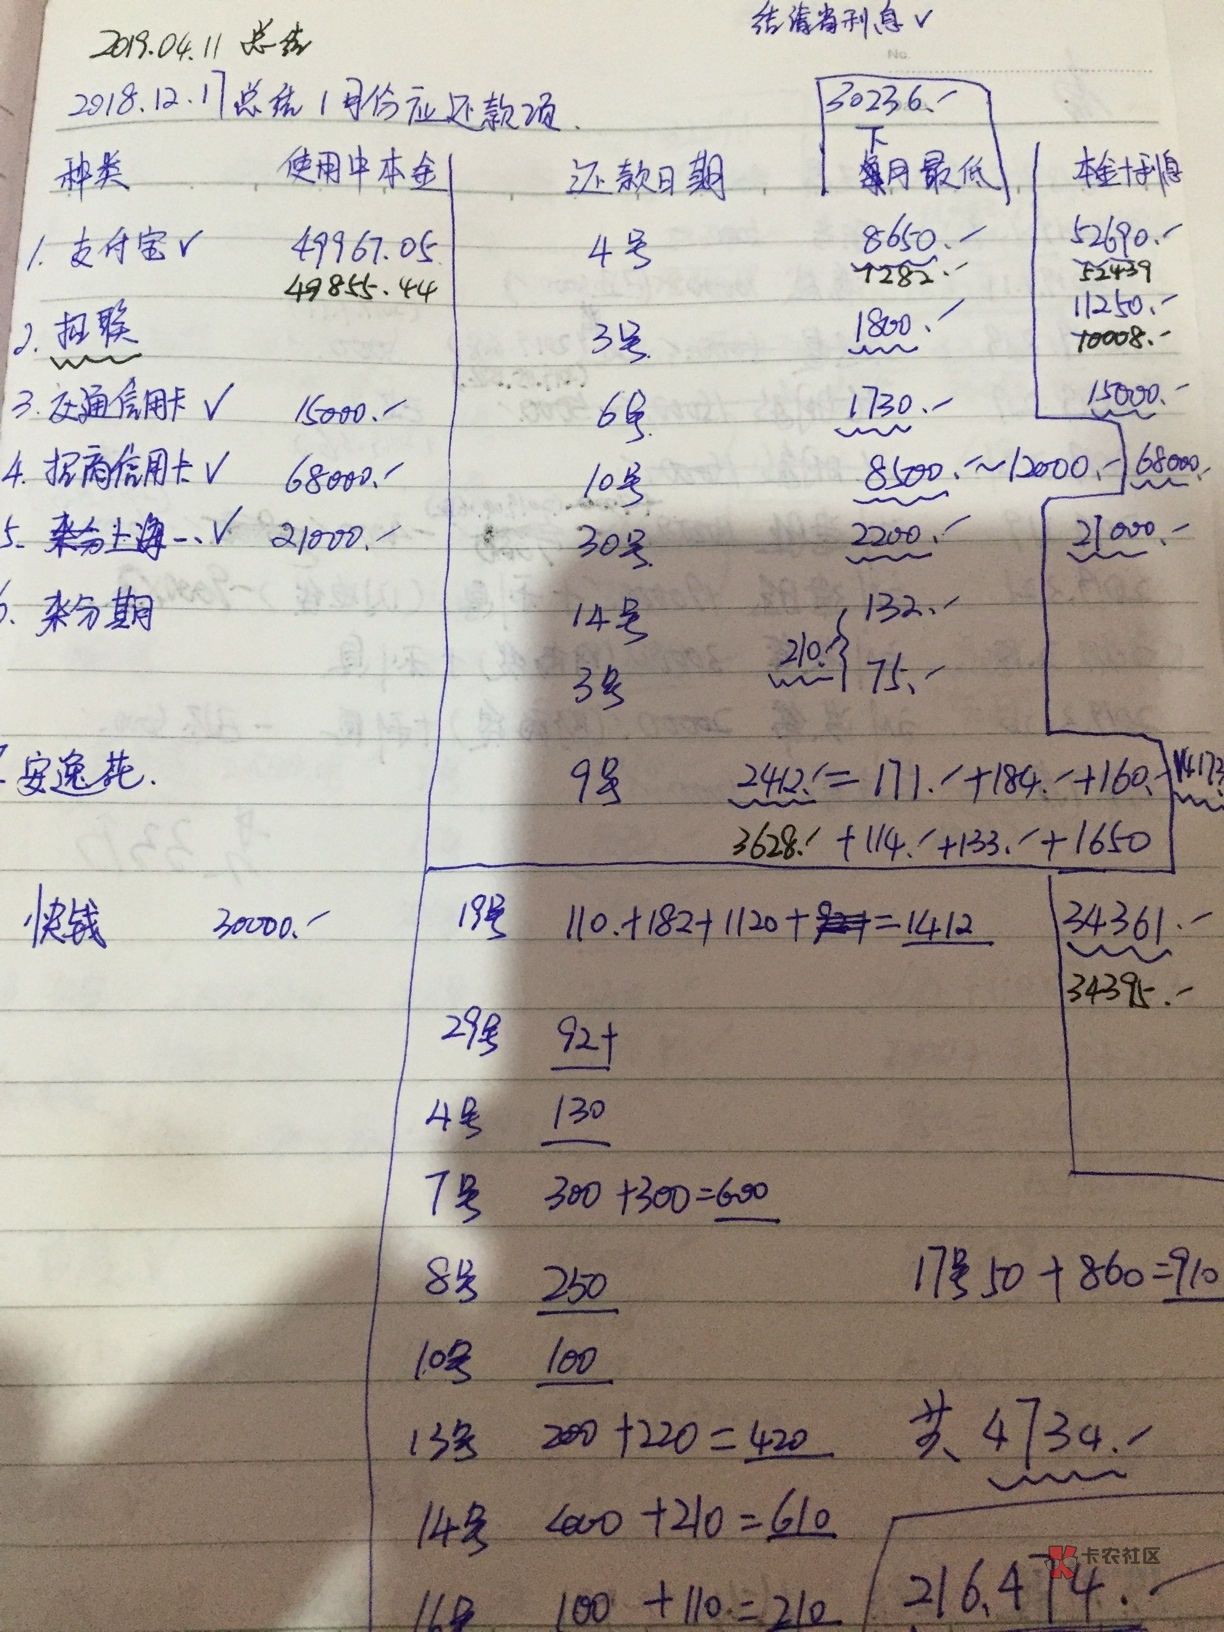 结清省利息✓
2019.04.11 总结
2018.12.17总结1月份应还款项.
30236.-
种类 使用中本金 还款日期 下月最低 本金+利息
1. 支付宝✓ 49967.05 4号 8650.- 52690.-
49855.44 7282.- 52439
2. 招联 3号 1800.- 11250.-
10008.-
3. 交通信用卡✓ 15000.- 6号 1730.- 15000.-
4. 招商信用卡✓ 68000.- 10号 8500.-~12000.- 68000.
5. 来分上海一.✓ 21000.- 30号 2200.- 21000.-
来分期 14号 132.-
210. { 
3号 75.-
安逸花. 9号 2412.-=171.-+184.-+160.-
3628.- +114.-+133.-+1650
快钱 30000.- 19号 110.+182+1120+=1412 34361.-
34395.-
29号 92+
4号 130
7号 300+300=600
8号 250 17号50+860=910
10号 100
13号 200+220=420 共 4734.-
14号 400+210=610
16号 100+110=210 216,474.-
卡农社区